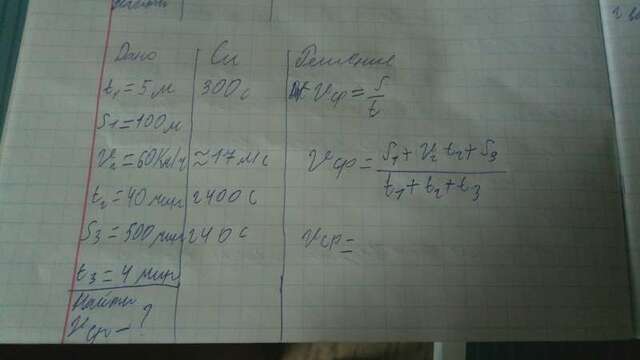 Дано Си Решение
t₁ = 5 м 300 с Vср = S/t
S₁ = 100 м
V₂ = 60 км/ч ≈ 17 м/с Vср = (S₁ + V₂ t₂ + S₃)/(t₁ + t₂ + t₃)
t₂ = 40 мин 2400 с
S₃ = 500 мин 240 с Vср =
t₃ = 4 мин
Найти
Vср - ?